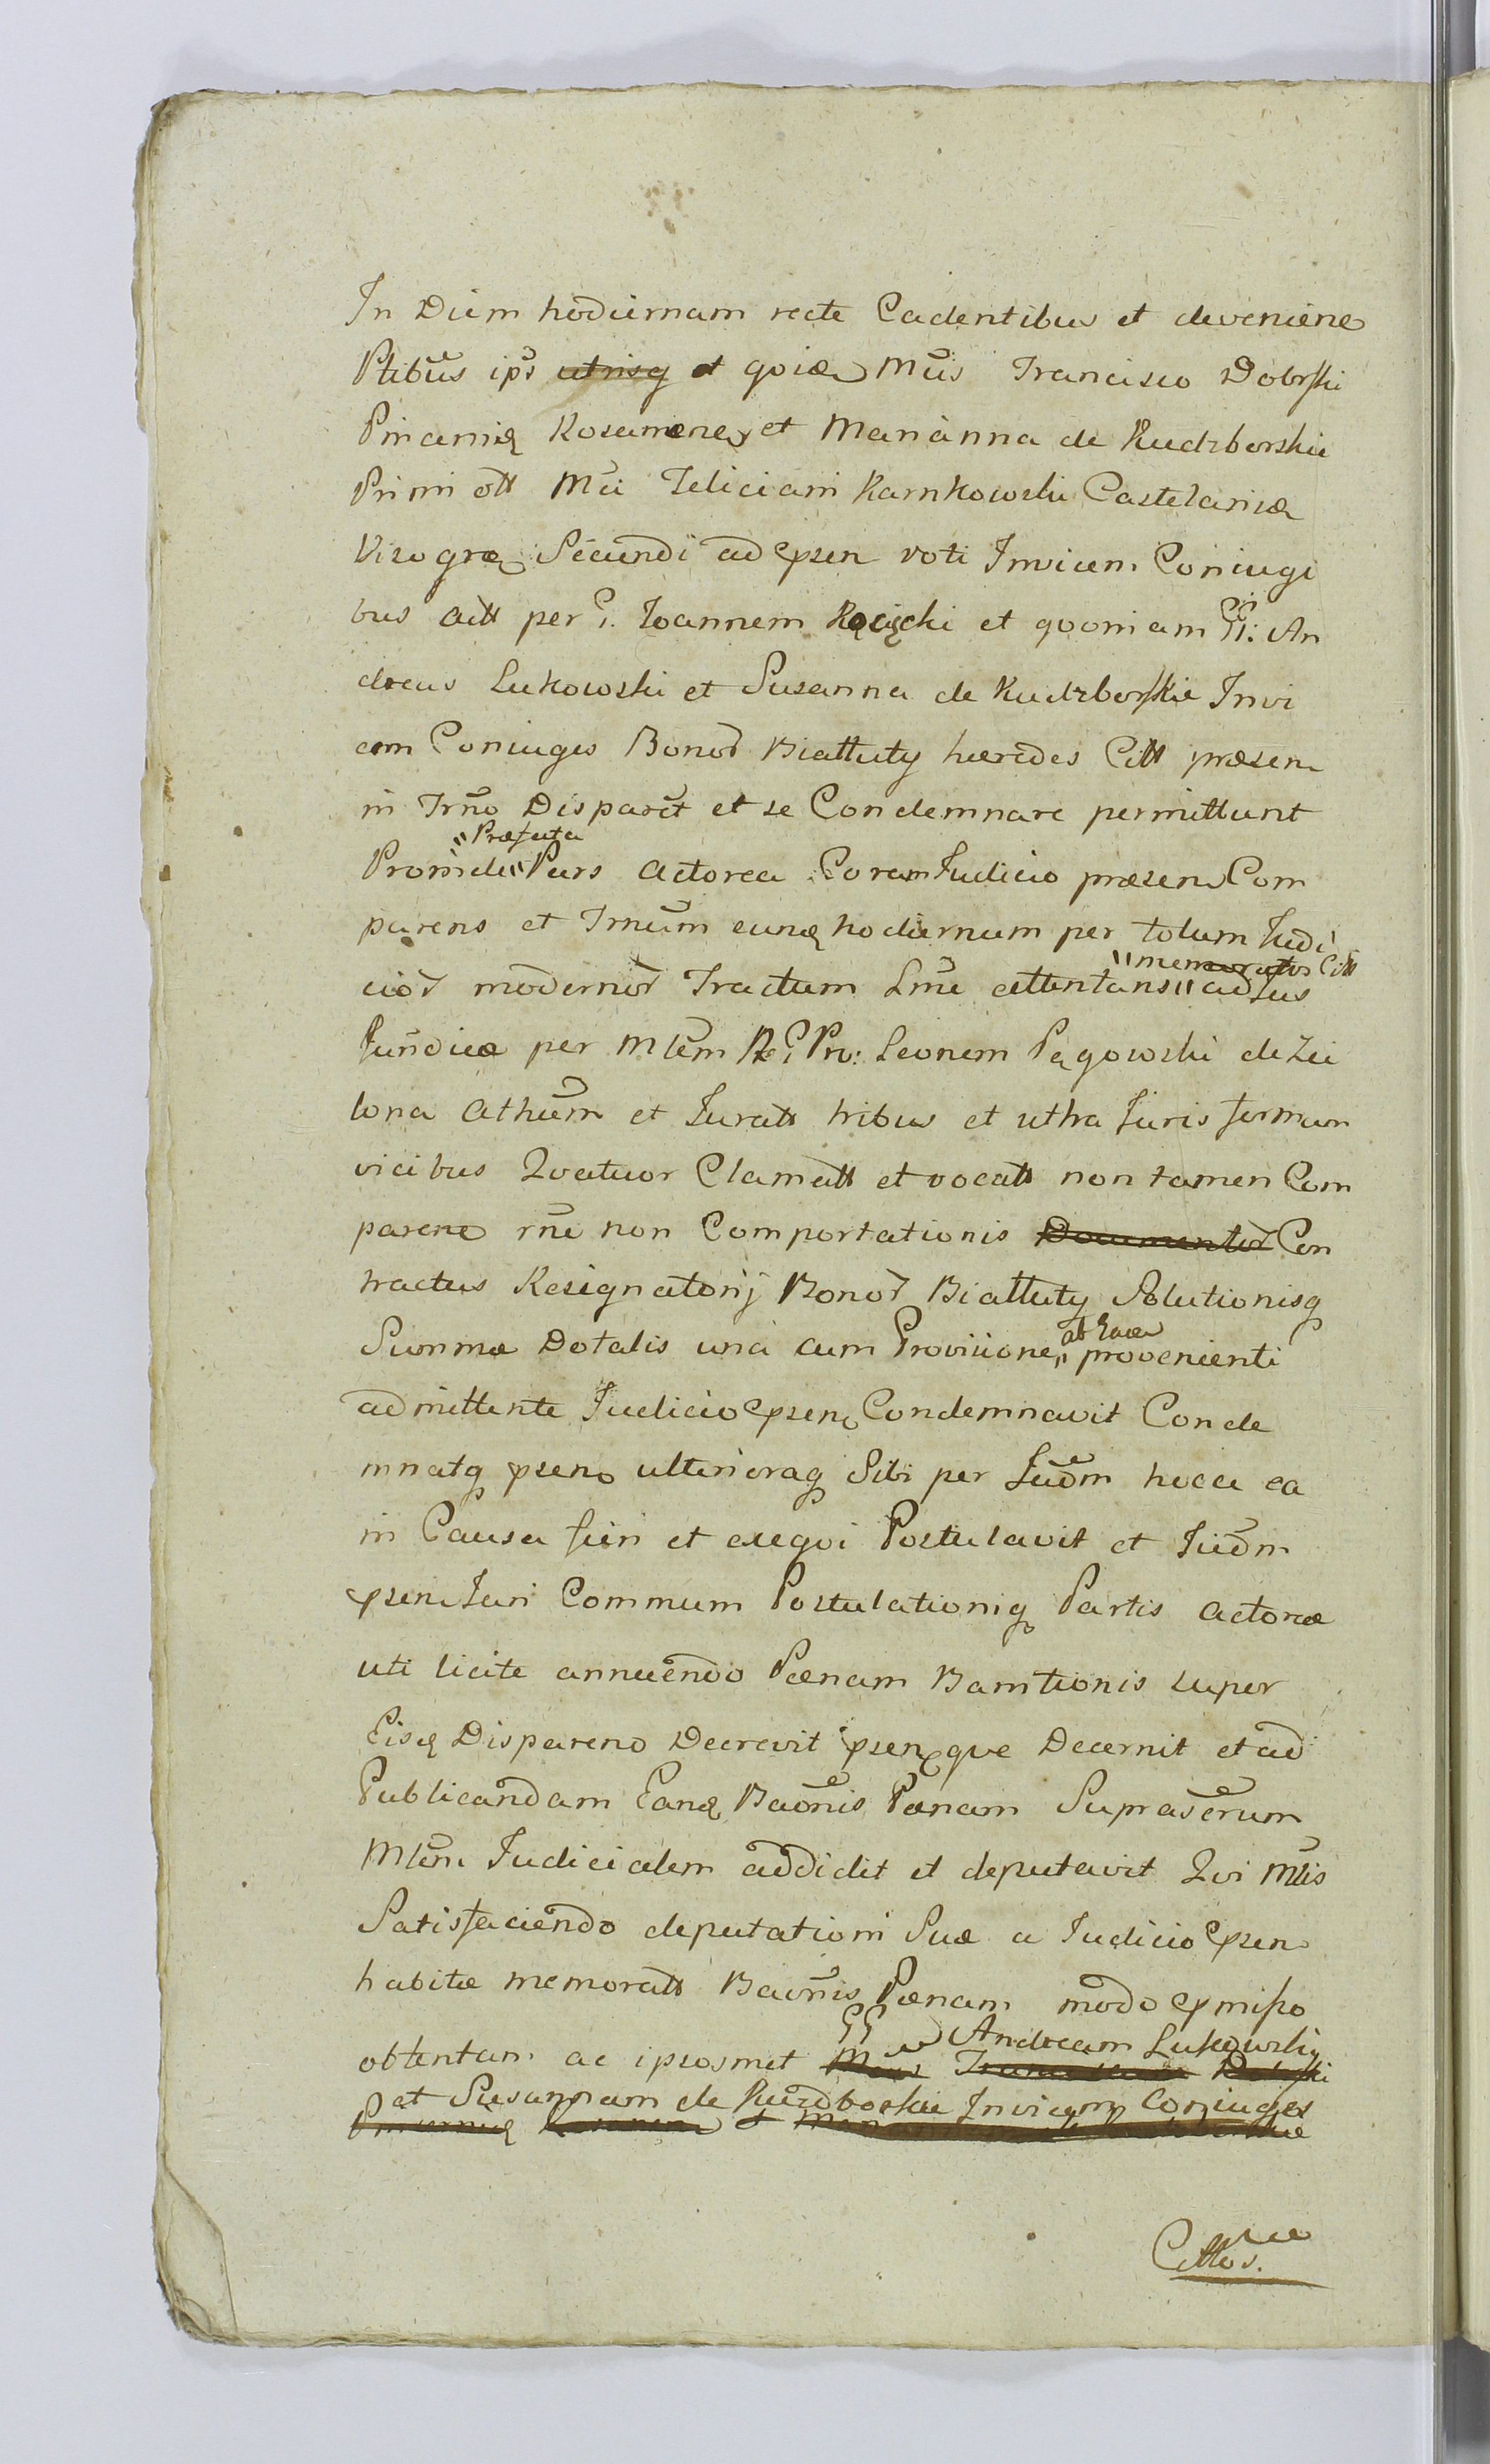 In Diem hodiernam recte Cadentibus et deveniene
Ptibus ips utrisq et qoia Mcis Francisco Dobrski
Pincerniq Rosaniene et Marianna de Rudzborskie
Primi ott Mci Feliciani Karnkowski Castelanica
Visogra Secundi ad psen voti Invicem Coniugi
bus Actt per G. Joannem et qooniam GG: An
dreas Lukowski et Susanna de Rudzborskie Invi
cem Coniuges Bonor Biattuty hæredes Citt præsen
in Trno Disparet et se Condemnare permittunt
"Præfata
Proinde" Pars Actorea Coram Judicio præsen Com
parens et Trnum eunq hodiernum per totum Judi
"memoratos Citt
cior modernor Tractum Lme attentans" ad Jus
Juridice per Mlem Rg Prv: Leonem Pągowski de Zie
lona Athum et Juratt tribus et ultra Juris formam
vicibus Qvatuor Clamatt et vocatt non tamen Com
parene rne non Comportationis Documentor Con
tractus Resignatorij Bonor Biattuty Solutionisq
ab Eaa
Summæ Dotalis una cum Provisione" provenienti
admittente Judicio psen Condemnavit Conde
mnatq psen ulterioraq Sibi per Judm hocce ea
in Causa fieri et exeqvi Postulavit et Judm
psen Juri Commum Postulationiq Partis Actoreæ
uti licite annuendo Pænam Bannitionis super
Eisq Dispareno Decrevit psenqve Decernit et ad
Publicandam Eanq Baonis Pænam Suprascrum
Mlem Judicialem addidit et deputavit Qvi Mlis
Satisfaciendo deputationi Suæ a Judicio psen
habitæ memoratt Baonis Pænam modo pmisso
GG Andream Lukowski
obtentam ac ipsosmet
et Susannam de Rudzborskie Invicem Coniuges
Cittos.